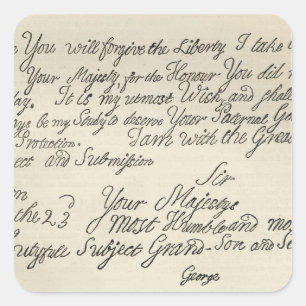 You will forgive the Liberty I take
Your Majesty for the Honour You did m
day. It is my utmost Wish and shall
be my Study to deserve Your Paternal Go
Protection. I am with the Grea
ect and Submission
Sir
the 23 Your Majestys
most Humble and mo
utyfull Subject Grand-Son and Se
George